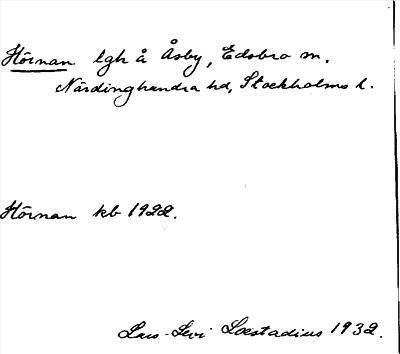 Hörnan lgh å Åsby, Edsbro sn.
Närdinghundra hd, Stockholms l.
Hörnan kb 1922.
Lars-Levi Læstadius 1932.